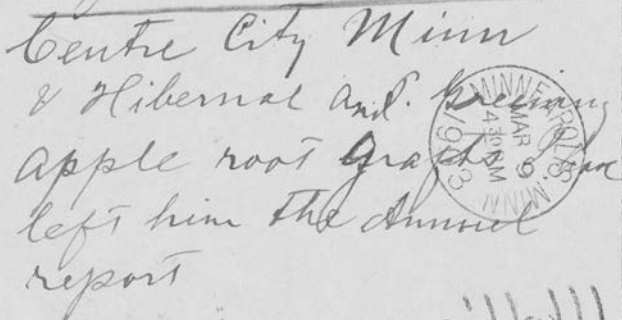 Centre City Minn
& Hibernal and P. Greening
apple root Grafts I have
left him the Annuel
report
MINNEAPOLIS. MINN.
MAR 9
430 PM
1903